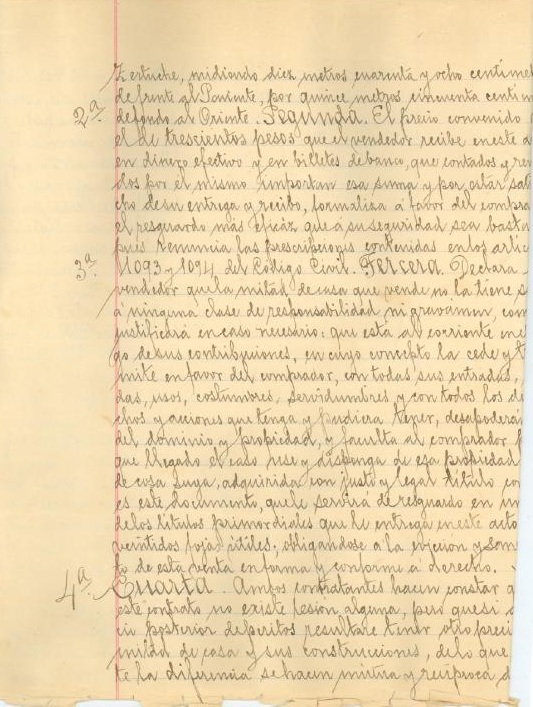 Zertuche, midiendo diez metros cuarenta y ocho centíme
de frente al Poniente, por quince metros cincuenta centím
2a. de fondo al Oriente. Segunda. El precio convenido
el de trescientos pesos que el vendedor recibe en este a
en dinero efectivo y en billetes de banco, que contados y re
dos por el mismo importan esa suma y por estar sa
cho de su entrega y recibo, formaliza á favor del compra
el resguardo más eficáz que á su seguridad sea basta
pués renuncia las prescripciones contenidas en los artíc
3a. 1093 y 1094 del Código Civil. Tercera. Declara
vendedor que la mitad de casa que vende no la tiene s
á ninguna clase de responsabilidad ni gravámen, com
justificará en caso necesario: que está al corriente en e
go de sus contribuciones, en cuyo concepto la cede y t
mite en favor del comprador, con todas sus entradas,
das, usos, costumbres, servidumbres y con todos los de
chos y acciones que tenga y pudiera tener, desapoderan
del dominio y propiedad, y faculta al comprador p
que llegado el caso use y disponga de esa propiedad
de cosa suya, adquirida con justo y legal título co
es este documento, que le servirá de resguardo en un
de los títulos primordiales que le entrega en este acto
veintidos fojas útiles, obligándose a la evicción y sanea
to de esta venta en forma y conforme a derecho.
4a. Cuarta. Ambos contratantes hacen constar q
este contrato no existe lesión alguna, pero que si
cio posterior de peritos resultare tener otro preci
mitad de casa y sus construcciones, de lo que
te la diferencia se hacen mútua y recíproca d